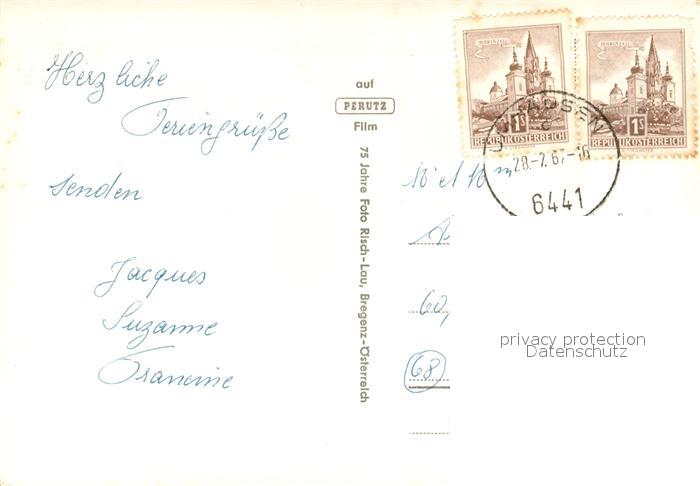 Herzliche
Feriengrüße
senden
Jacques
Suzanne
Francine
auf
PERUTZ
Film
75 Jahre Foto Risch-Lau, Bregenz-Österreich
1S
REPUBLIK ÖSTERREICH
1S
REPUBLIK ÖSTERREICH
6441
M et Mm
60,
68
privacy protection
Datenschutz